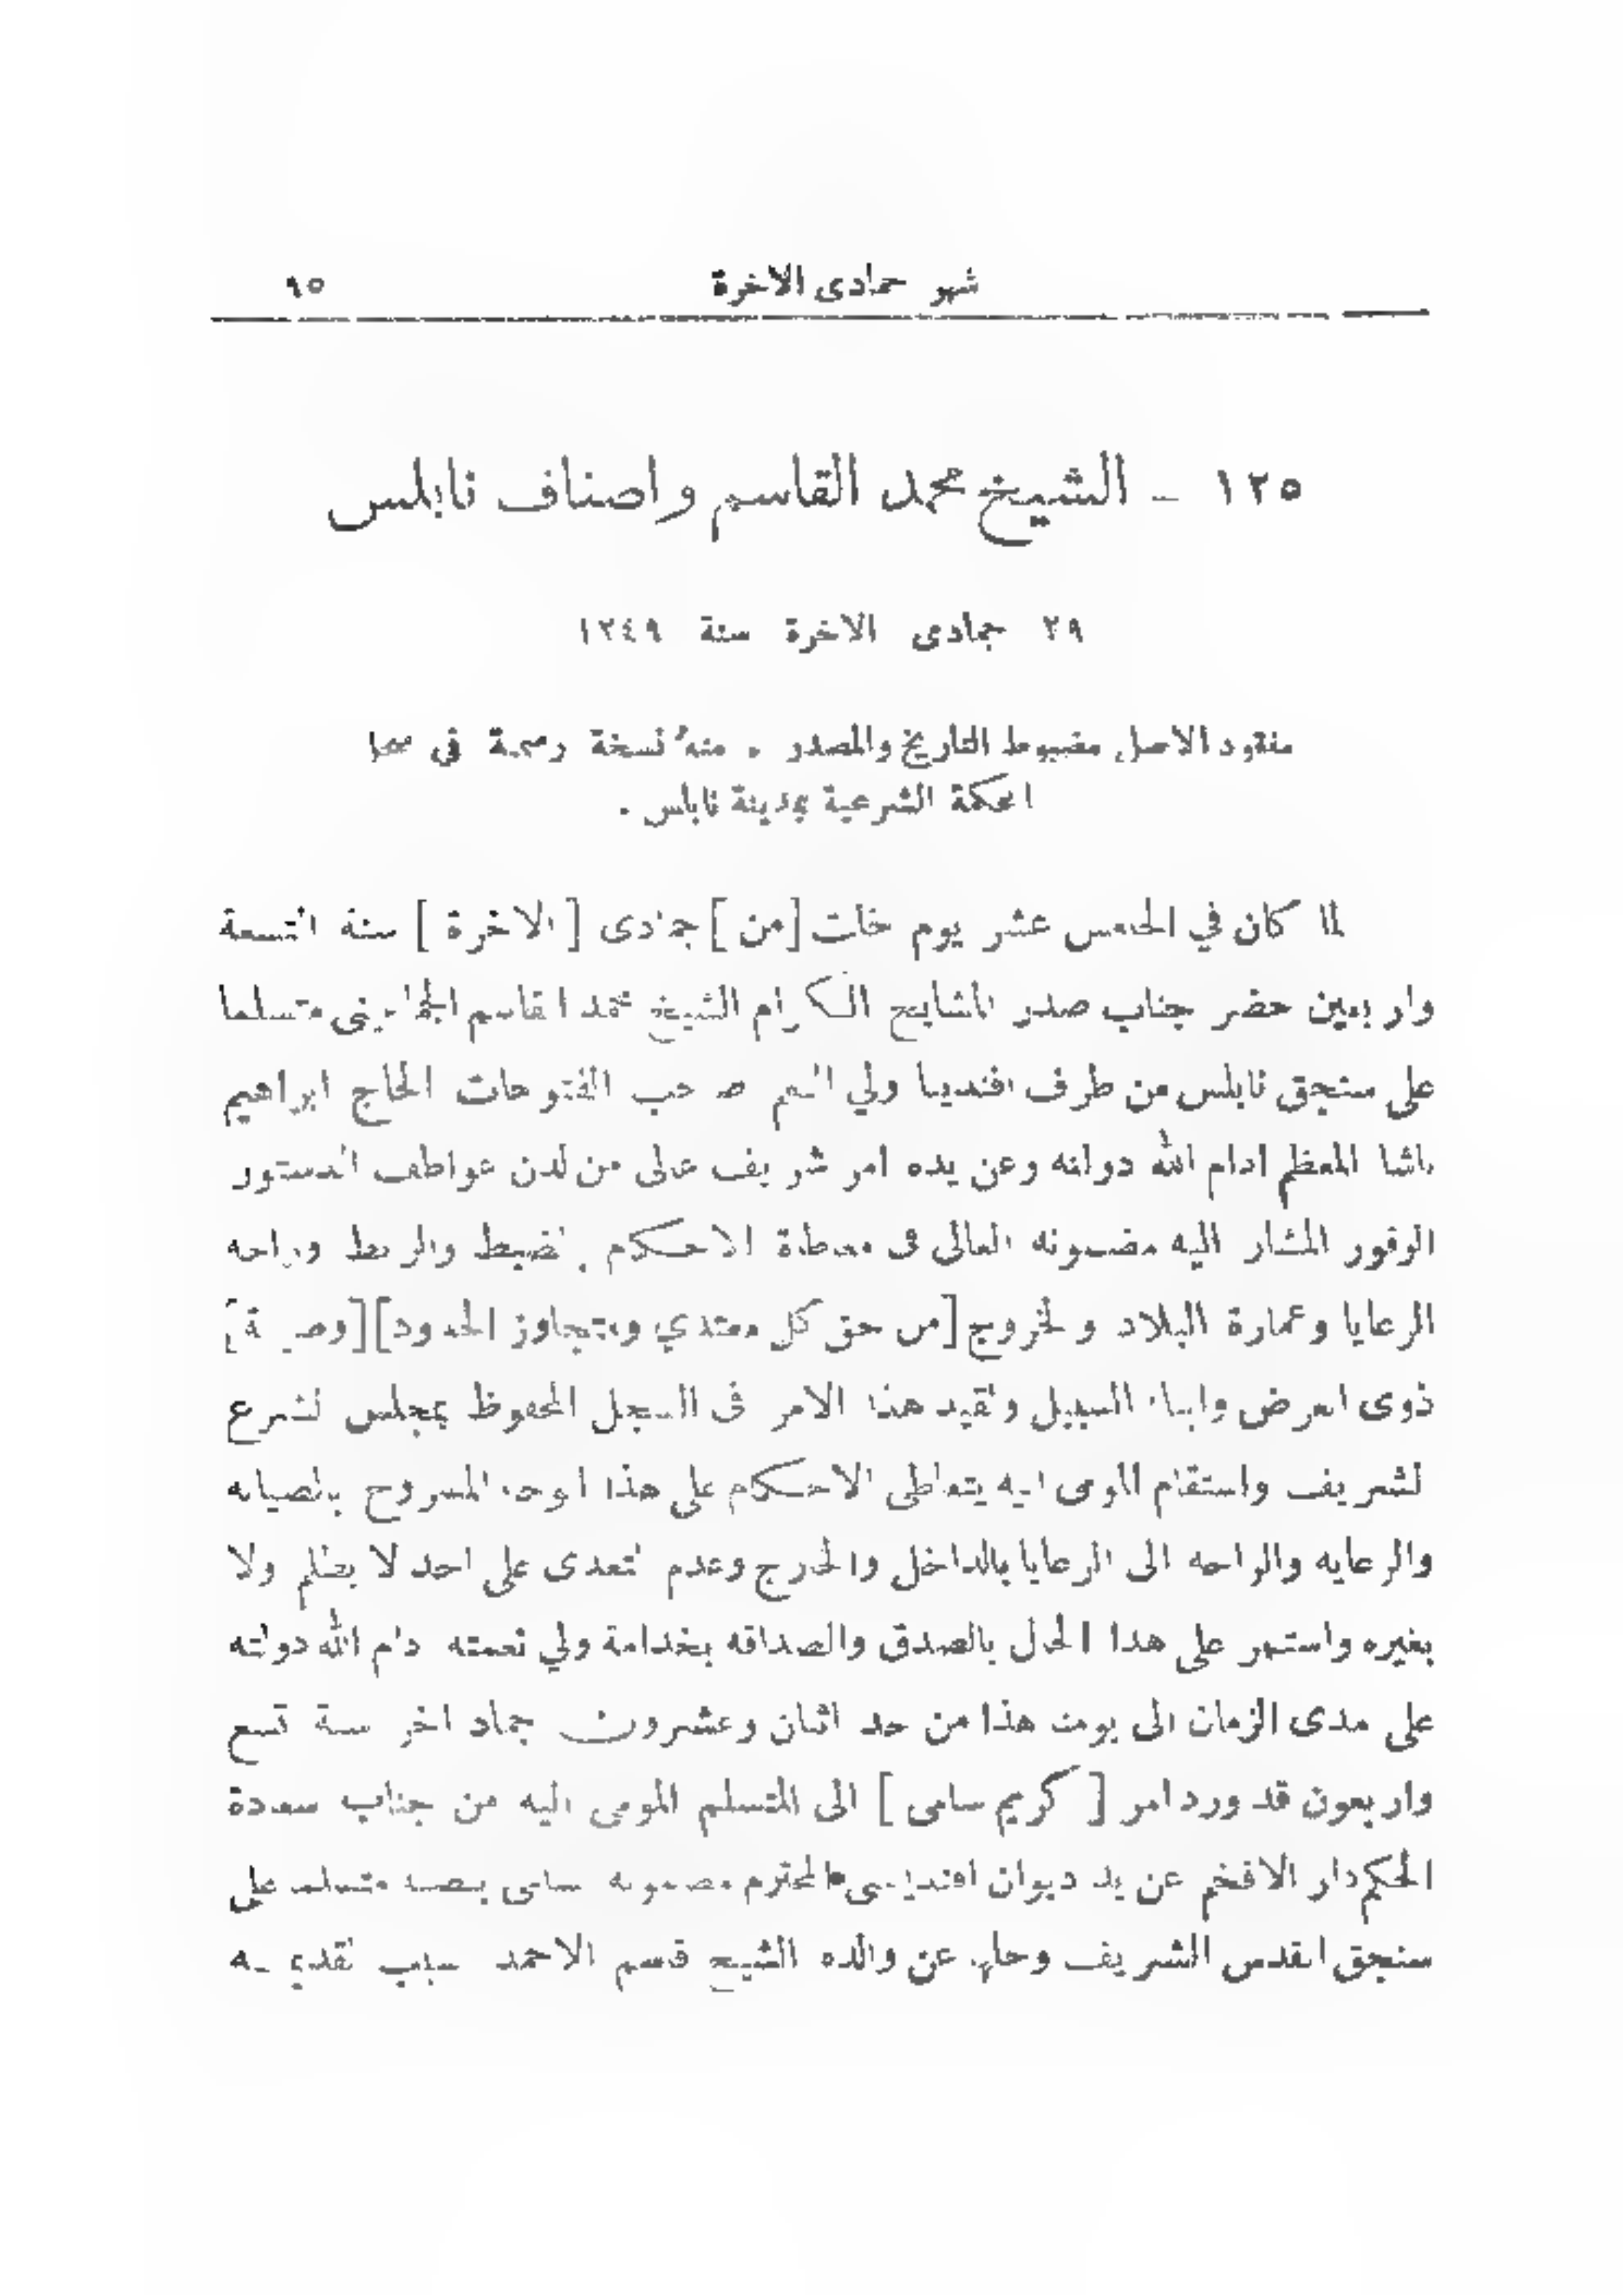 شهر جمادى الاخرة ٩٥
١٢٥ - الشيخ محمد القاسم واصناف نابلس
٢٩ جمادى الاخرة سنة ١٢٤٩
مفقود الاصل مضبوط التاريخ والمصدر . منه نسخة رسمية فى
المحكمة الشرعية بمدينة نابلس .
لما كان في الخامس عشر يوم خلت [من] جمادى [الاخرة] سنة التسعة
واربعين حضر جناب صدر المشايخ الكرام الشيخ محمد القاسم الجماعينى متسلما
على سنجق نابلس من طرف افندينا ولي النعم صاحب الفتوحات الحاج ابراهيم
باشا المعظم ادام الله دولته وعن يده امر شريف عالى من لدن عواطف الدستور
الوقور المشار اليه مضمونه العالى فى معطاة الاحكام بالضبط والربط وراحه
الرعايا وعمارة البلاد والخروج [من حق كل معتدي ومتجاوز الحدود]
ذوى العرض وابناء السبيل ولقيد هذا الامر فى السجل المحفوظ بمجلس الشرع
الشريف واستقام المومى اليه يتعاطى الاحكام على هذا الوجه المشروح بالصيانه
والرعايه والراحه الى الرعايا بالداخل والخارج وعدم التعدى على احد لا بظلم ولا
بغيره واستمر على هذا الحال بالصدق والصداقه بخدامة ولي نعمته دام الله دولته
على مدى الزمان الى يومنا هذا من حد اثنان وعشرون جماد اخر سنة تسع
واربعون قد ورد امر [كريم سامى] الى المتسلم المومى اليه من جناب سعادة
الحكمدار الافخم عن يد ديوان افنديسى المحترم مضمونه سامى بنصبه متسلما على
سنجق القدس الشريف وحلها عن والده الشيخ قاسم الاحمد سبب